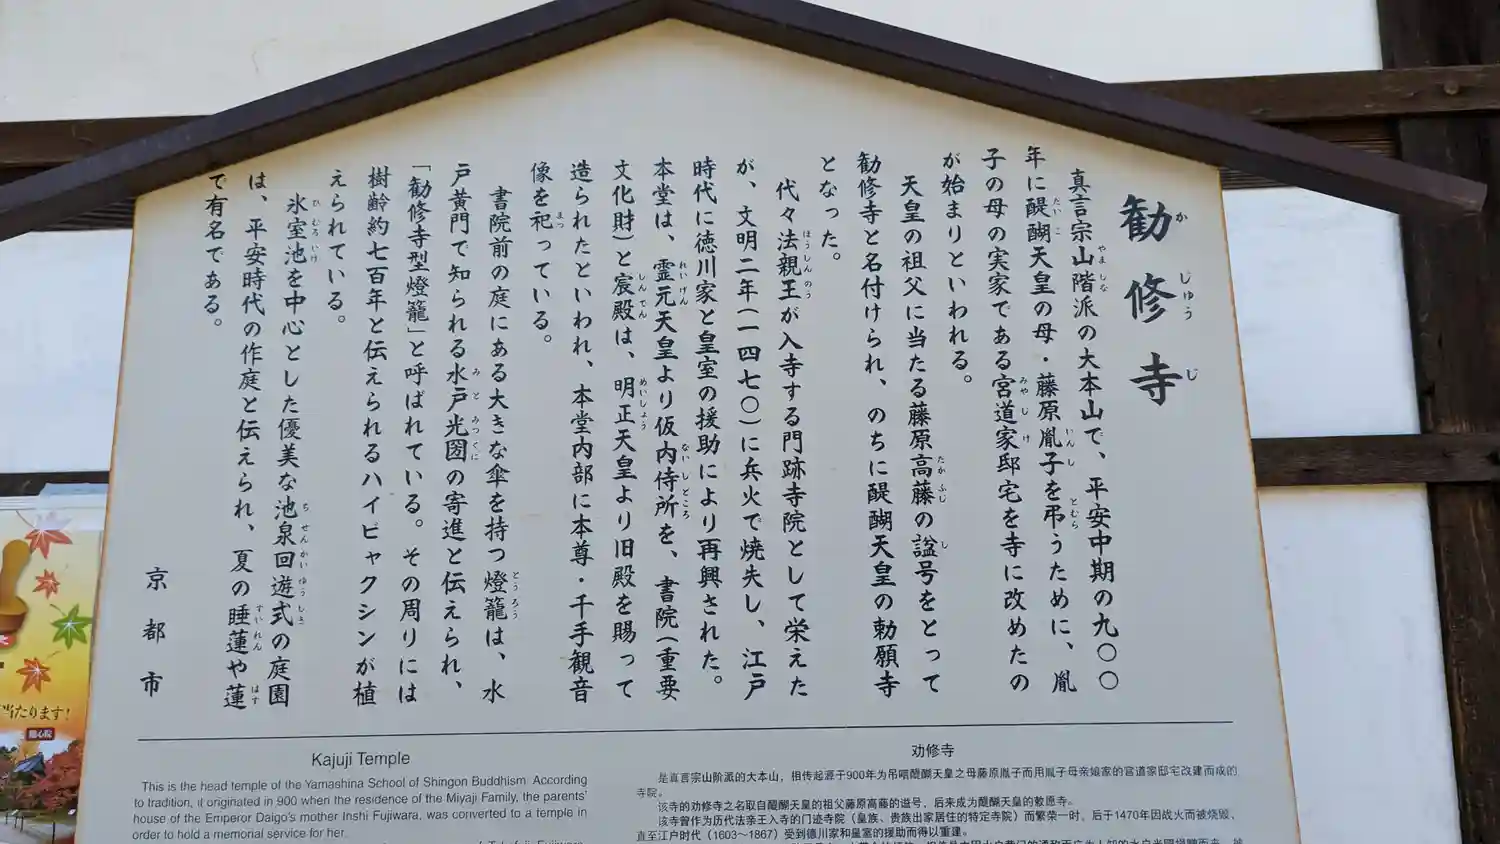 勧修寺
かしゅうじ
真言宗山階派の大本山で、平安中期の九〇〇
年に醍醐天皇の母・藤原胤子を弔うために、胤
子の母の実家である宮道家邸宅を寺に改めたの
が始まりといわれる。
天皇の祖父に当たる藤原高藤の諡号をとって
勧修寺と名付けられ、のちに醍醐天皇の勅願寺
となった。
代々法親王が入寺する門跡寺院として栄えた
が、文明二年(一四七〇)に兵火で焼失し、江戸
時代に徳川家と皇室の援助により再興された。
本堂は、霊元天皇より仮内侍所を、書院(重要
文化財)と宸殿は、明正天皇より旧殿を賜って
造られたといわれ、本堂内部に本尊・千手観音
像を祀っている。
書院前の庭にある大きな傘を持つ燈籠は、水
戸黄門で知られる水戸光圀の寄進と伝えられ、
「勧修寺型燈籠」と呼ばれている。その周りには
樹齢約七百年と伝えられるハイビャクシンが植
えられている。
氷室池を中心とした優美な池泉回遊式の庭園
は、平安時代の作庭と伝えられ、夏の睡蓮や蓮
で有名である。
京都市
Kajuji Temple
This is the head temple of the Yamashina School of Shingon Buddhism. According
to tradition, it originated in 900 when the residence of the Miyaji Family, the parents'
house of the Emperor Daigo's mother Inshi Fujiwara, was converted to a temple in
order to hold a memorial service for her.
劝修寺
是真言宗山阶派的大本山，相传起源于900年为吊唁醍醐天皇之母藤原胤子而用胤子母亲娘家的宫道家邸宅改建而成的
寺院。
该寺的劝修寺之名取自醍醐天皇的祖父藤原高藤的谥号，后来成为醍醐天皇的敕愿寺。
该寺曾作为历代法亲王入寺的门迹寺院（皇族、贵族出家居住的特定寺院）而繁荣一时，后于1470年因战火而被烧毁，
直至江户时代（1603～1867）受到德川家和皇室的援助而得以重建。
当たります!
随心院